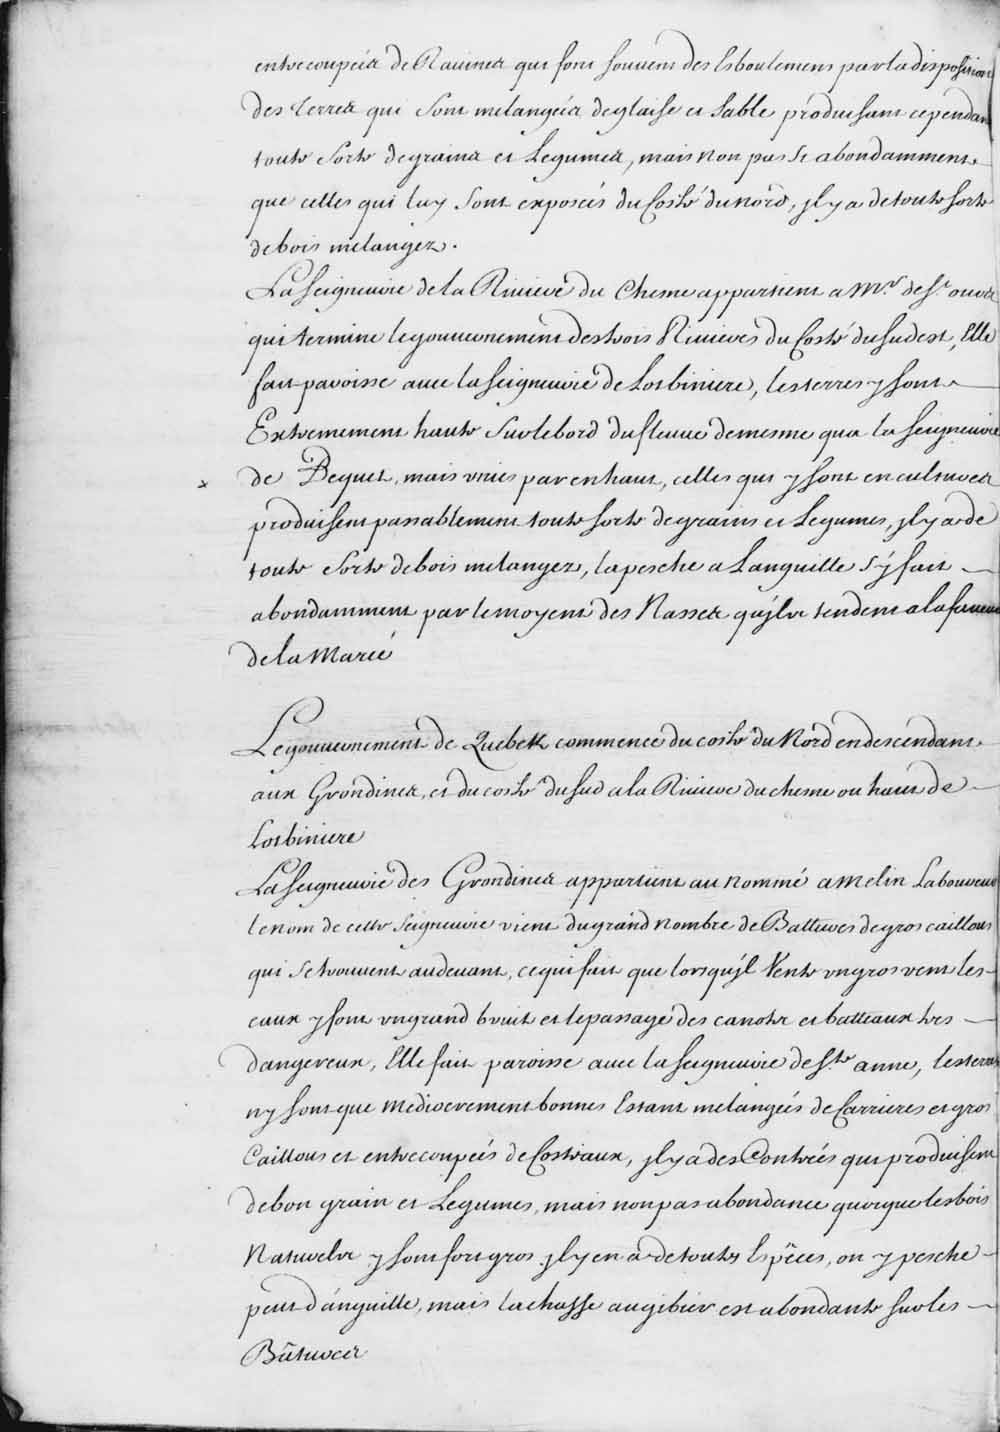 entrecoupéés de Rauines qui font souuent des Esboulemens par la disposition
des terres qui sont melangéés de glaise et sable produisant cependant
toute sorte de grains et Legumes, mais non pas si abondamment
que celles qui luy sont exposéés du Costé du nord, jl y a de toute sorte
de bois melangez.
La seigneurie de la Riuiere du Chesne appartient a Mr. de St. ours
qui termine le gouuernement des trois Riuieres du Costé du sudest, Elle
fait paroisse auec la seigneurie de Lotbiniere, les terres y sont
Extremement haute sur le bord du fleuue de mesme que la seigneurie
x de Bequet, mais vnies par en haut, celles qui y sont en cultures
produisent passablement toute sorte de grains et Legumes, jl y a de
toute sorte de bois melangez, la pesche a Languille s'y fait
abondamment par le moyent des Nasses qu'jls tendent a la
de la Mareé
Le gouuernement de Quebek commence du costé du Nord en descendant
aux Grondines, et du costé du sud a la Riuiere du chesne ou haut de
Lotbiniere
La seigneurie des Grondines appartient au nommé amelin Laboureur
le nom de cette seigneurie vient du grand nombre de Battures de gros cailloux
qui se trouuent au deuant, ce qui fait que lorsqu'jl Vente vn gros vent les
eaux y font vn grand bruit et le passage des canots et batteaux tres
dangereux, Elle fait paroisse auec la seigneurie de Ste. anne, les terres
n'y sont que mediocrement bonnes Estant melangéés de Carrieres et gros
Caillous et entrecoupéés de Costeaux, jl y a des Contréés qui produisent
de bon grain et Legumes, mais non pas abondance quoique les bois
Naturels y sont fort gros jl y en a de toutes Espéces, on y pesche
peut d'anguille, mais la chasse au gibier est abondante sur les
Bâtures